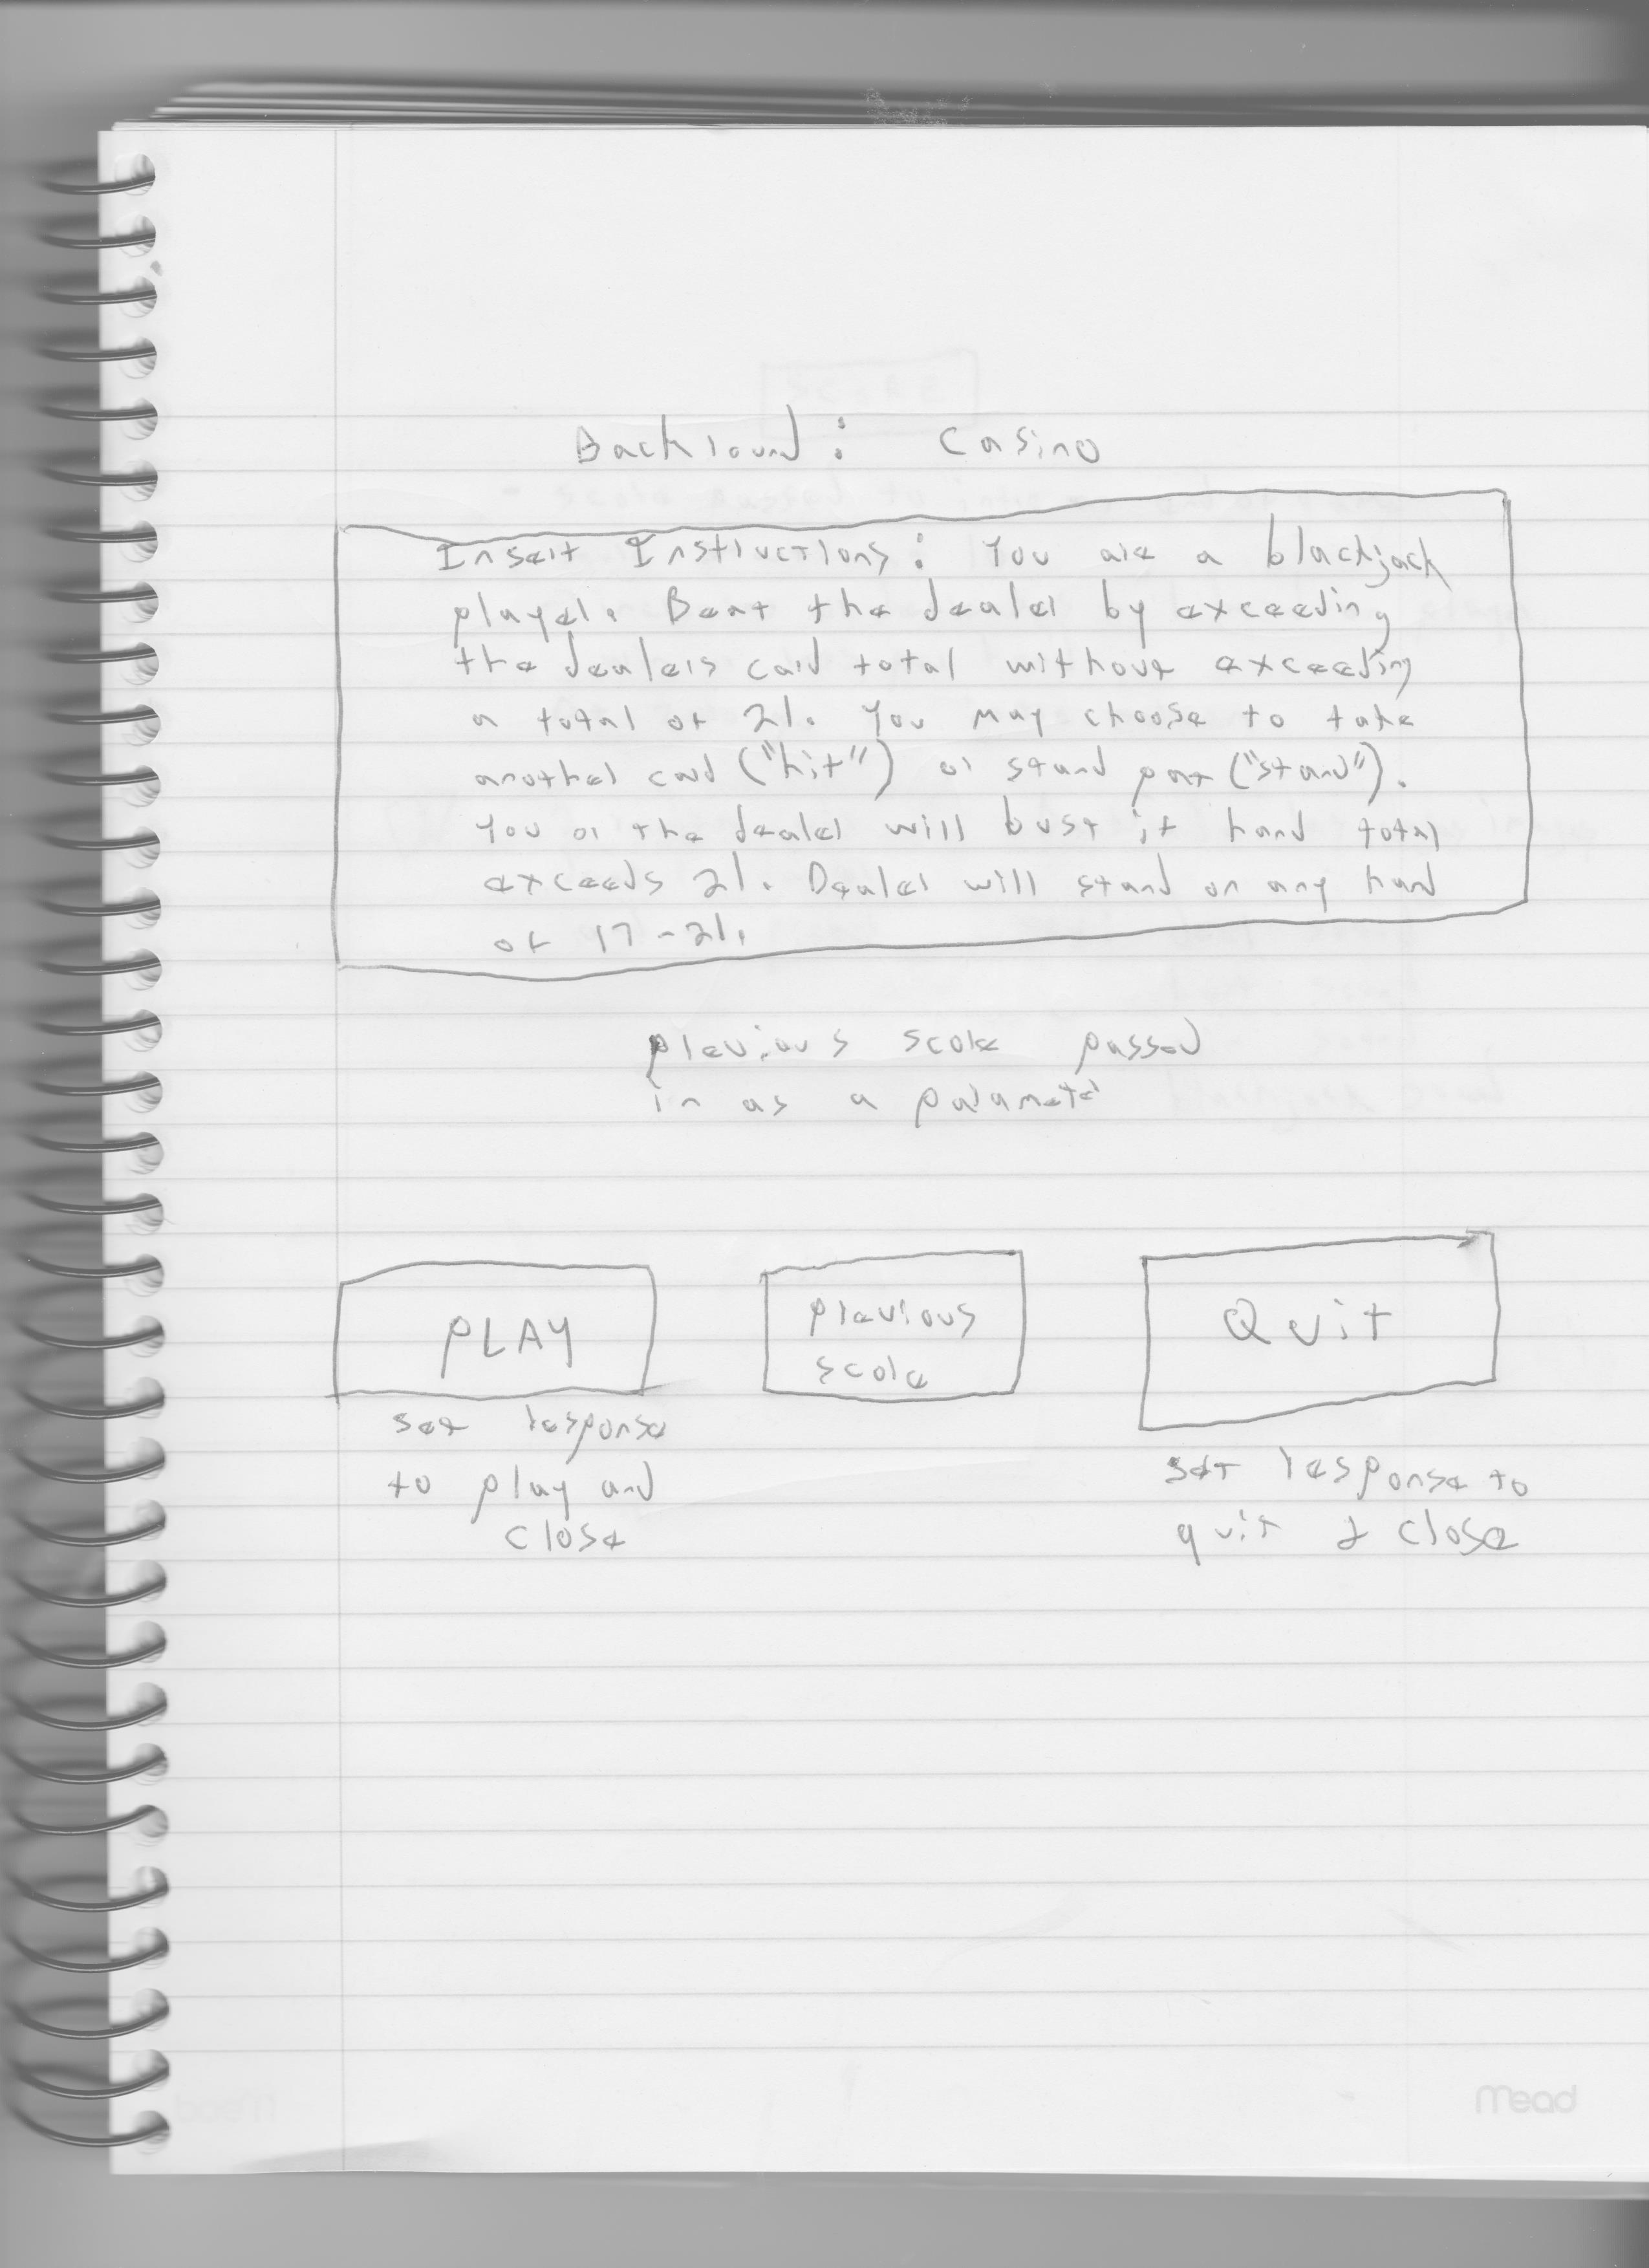 Backround: Casino
Insert Instructions: You are a blackjack
player. Beat the dealer by exceeding
the dealers card total without exceeding
a total of 21. You may choose to take
another card ("hit") or stand pat ("stand").
You or the dealer will bust if hand total
exceeds 21. Dealer will stand on any hand
of 17-21.
previous score passed
in as a parameter
PLAY
previous
score
Quit
set response
to play and
close
set response to
quit & close
mead